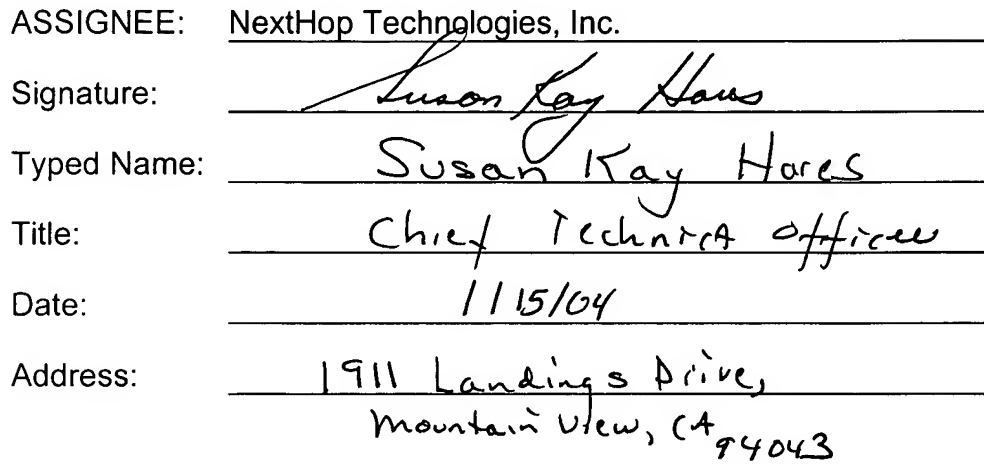 ASSIGNEE: NextHop Technologies, Inc.
Signature: Susan Kay Hares
Typed Name: Susan Kay Hares
Title: Chief Technical Officer
Date: 1/15/04
Address: 1911 Landings Drive,
Mountain View, CA 94043